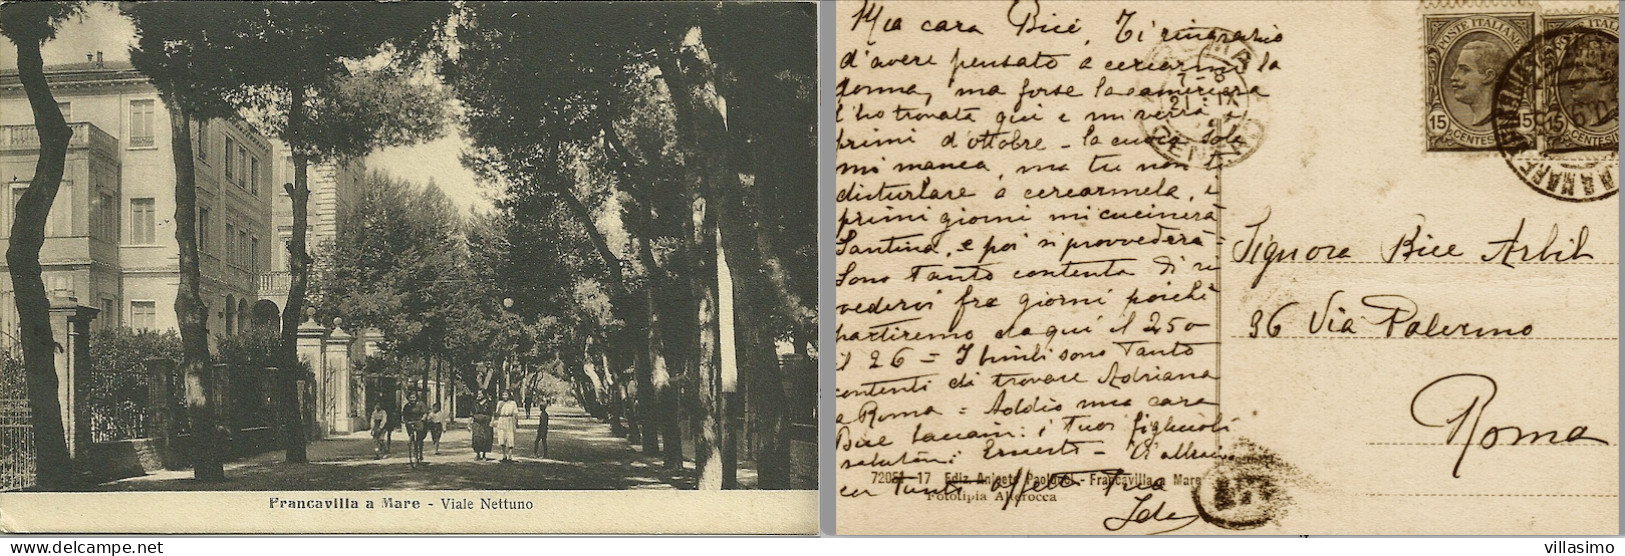 Francavilla a Mare - Viale Nettuno
Mia cara Bice, Ti ringrazio
d'avere pensato a cercarmi la
donna, ma forse la cameriera
l'ho trovata qui e mi verrà ai
primi d'ottobre - la cuoca sola
mi manca, ma tu non ti
disturbare a cercarmela, i
primi giorni mi cucinerà
Santina, e poi si provvederà =
Sono tanto contenta di ri
vedervi fra giorni poichè
partiremo da qui il 25 o
il 26 = I bimbi sono tanto
contenti di trovare Adriana
a Roma = Addio mia cara
Bice baciami i tuoi figliuoli
salutami Ernesto - Ti abbraccio
con tanto affetto Tua
Ida
72051 17 Ediz. Aniceto Paolucci - Francavilla a Mare
Fototipia Alterocca
POSTE ITALIANE
15 CENTESIMI 15
POSTE ITALIANE
15 CENTESIMI
Signora Bice Arbib
36 Via Palermo
Roma
villasimo